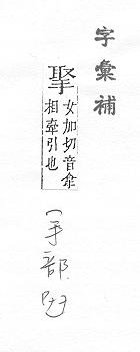 字彙補
女加切音拿
相牽引也
(手部